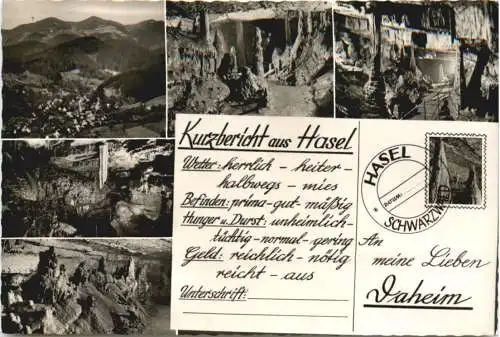 Kurzbericht aus Hasel
Wetter: herrlich - heiter -
halbwegs - mies
Befinden: prima - gut - mäßig
Hunger u. Durst: unheimlich -
tüchtig - normal - gering
Geld: reichlich - nötig
reicht - aus
Unterschrift:
HASEL
Datum:
SCHWARZWALD
An
meine Lieben
Daheim